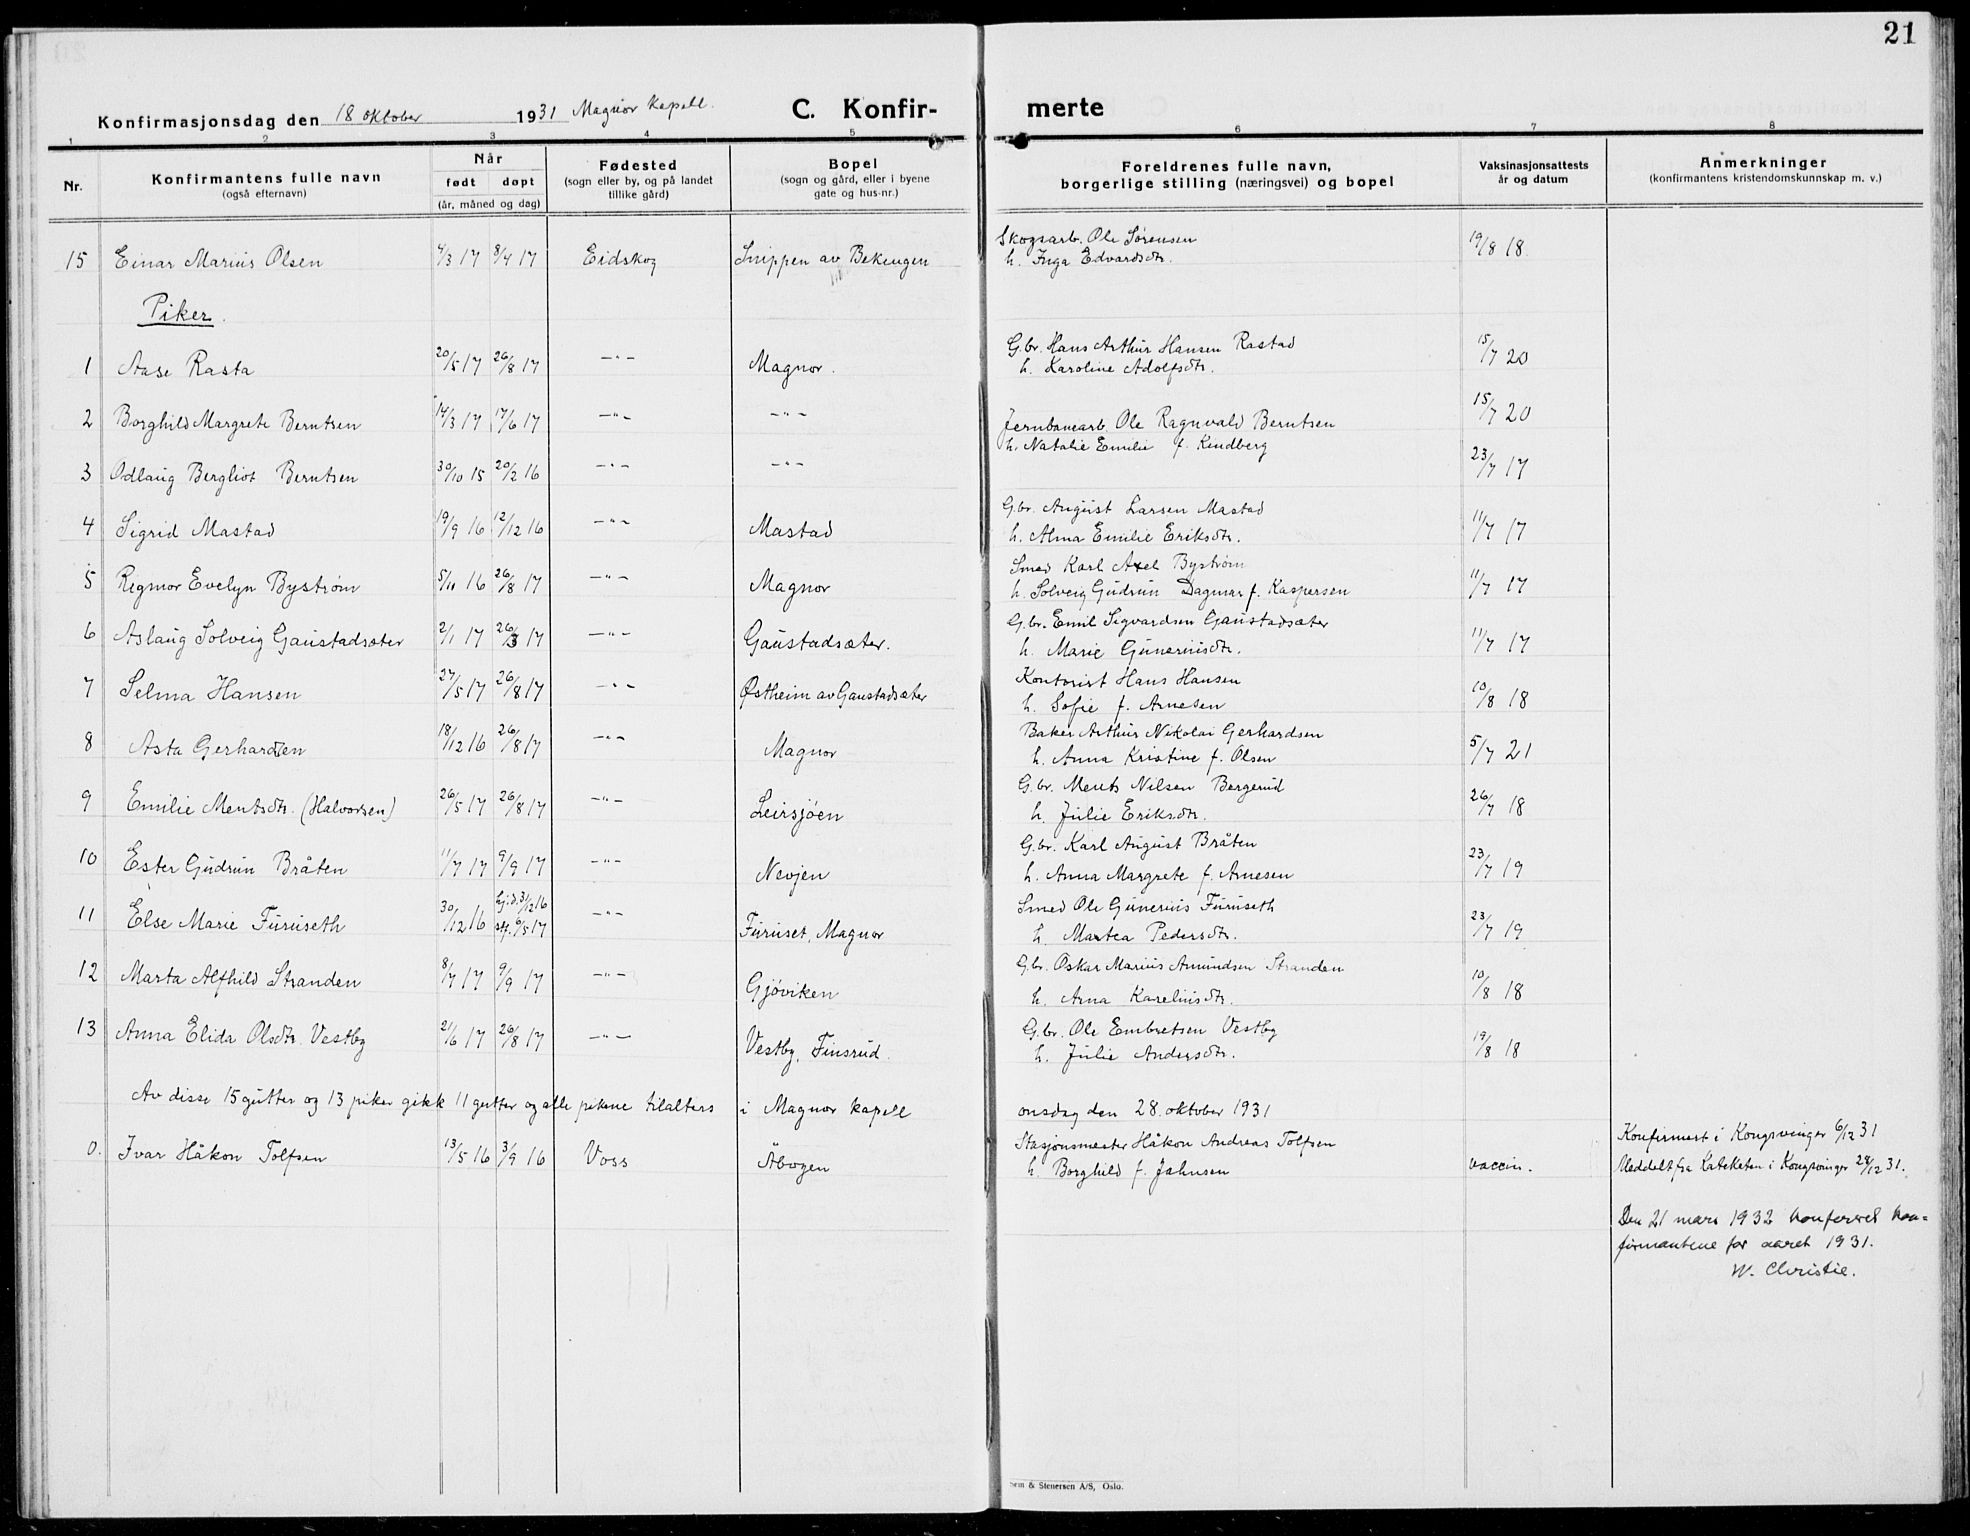 21
Konfirmasjonsdag den 18 oktober 1931 Magnor kapell.
C. Konfir-
merte
1 2 3 4 5 6 7 8
Nr.
Konfirmantens fulle navn
(også efternavn)
Når
født døpt
(år, måned og dag)
Fødested
(sogn eller by, og på landet
tillike gård)
Bopel
(sogn og gård, eller i byene
gate og hus-nr.)
Foreldrenes fulle navn,
borgerlige stilling (næringsvei) og bopel
Vaksinasjonsattests
år og datum
Anmerkninger
(konfirmantens kristendomskunnskap m. v.)
15 Einar Marius Olsen 4/3 17 8/4 17 Eidskog Snippen av Bekengen Skogsarb. Ole Sørensen 19/8 18
h. Inga Edvardsdtr.
Piker.
1 Aase Rasta 20/5 17 26/8 17 —"— Magnor. G.br. Hans Arthur Hansen Rastad 15/7 20
h. Karoline Adolfsdtr.
2 Borghild Margrete Berntsen 14/3 17 17/6 17 —"— —"— Jernbanearb. Ole Ragnvald Berntsen 15/7 20
h. Natalie Emilie f. Kindberg
3 Odlaug Bergliot Berntsen 30/10 15 20/2 16 —"— —"— 23/7 17
4 Sigrid Mastad 19/9 16 12/12 16 —"— Mastad G.br. August Larsen Mastad 11/7 17
h. Alma Emilie Eriksdtr.
5 Rigmor Evelyn Bystrøm 5/11 16 26/8 17 —"— Magnor Smed Karl Axel Bystrøm 11/7 17
h. Solveig Gudrun Dagmar f. Kaspersen
6 Aslaug Solveig Gaustadsæter 2/1 17 26/3 17 —"— Gaustadsæter. G.br. Emil Sigvardsen Gaustadsæter 11/7 17
h. Marie Guneriusdtr.
7 Selma Hansen 27/5 17 26/8 17 —"— Østheim av Gaustadsæter Kontorist Hans Hansen 10/8 18
h. Sofie f. Arnesen
8 Asta Gerhardsen 18/12 16 26/8 17 —"— Magnor Baker Arthur Nikolai Gerhardsen 5/7 21
h. Anna Kristine f. Olsen
9 Emilie Mentsdtr. (Halvorsen) 26/5 17 26/8 17 —"— Leirsjøen G.br. Ments Nilsen Bergerud 26/7 18
h. Julie Eriksdtr.
10 Ester Gudrun Bråten 11/7 17 9/9 17 —"— Nevjen G.br. Karl August Bråten 23/7 19
h. Anna Margrete f. Arnesen
11 Else Marie Furuseth 30/12 16 hj.d. 31/12 16 —"— Furuset, Magnor Smed Ole Gunerius Furuseth 23/7 19
stf. 6/5 17 h. Martea Pedersdtr.
12 Marta Alfhild Stranden 8/7 17 9/9 17 —"— Gjøviken G.br. Oskar Marius Amundsen Stranden 10/8 18
h. Arna Kareliusdtr.
13 Anna Elida Olsdtr. Vestby 21/6 17 26/8 17 —"— Vestby, Finsrud. G.br. Ole Embretsen Vestby 19/8 18
h. Julie Andersdtr.
Av disse 15 gutter og 13 piker gikk 11 gutter og alle pikene tilalters i Magnor kapell onsdag den 28. oktober 1931
0. Ivar Håkon Tolfsen 13/5 16 3/9 16 Voss Åbogen Stasjonsmester Håkon Andreas Tolfsen vaccin. Konfirmert i Kongsvinger 6/12 31
h. Borghild f. Jahnsen Meddelt fra Kateketen i Kongsvinger 28/12 31.
Den 21 mars 1932 konferert kon=
firmantene for aaret 1931.
W. Christie.
& Stenersen A/S, Oslo.